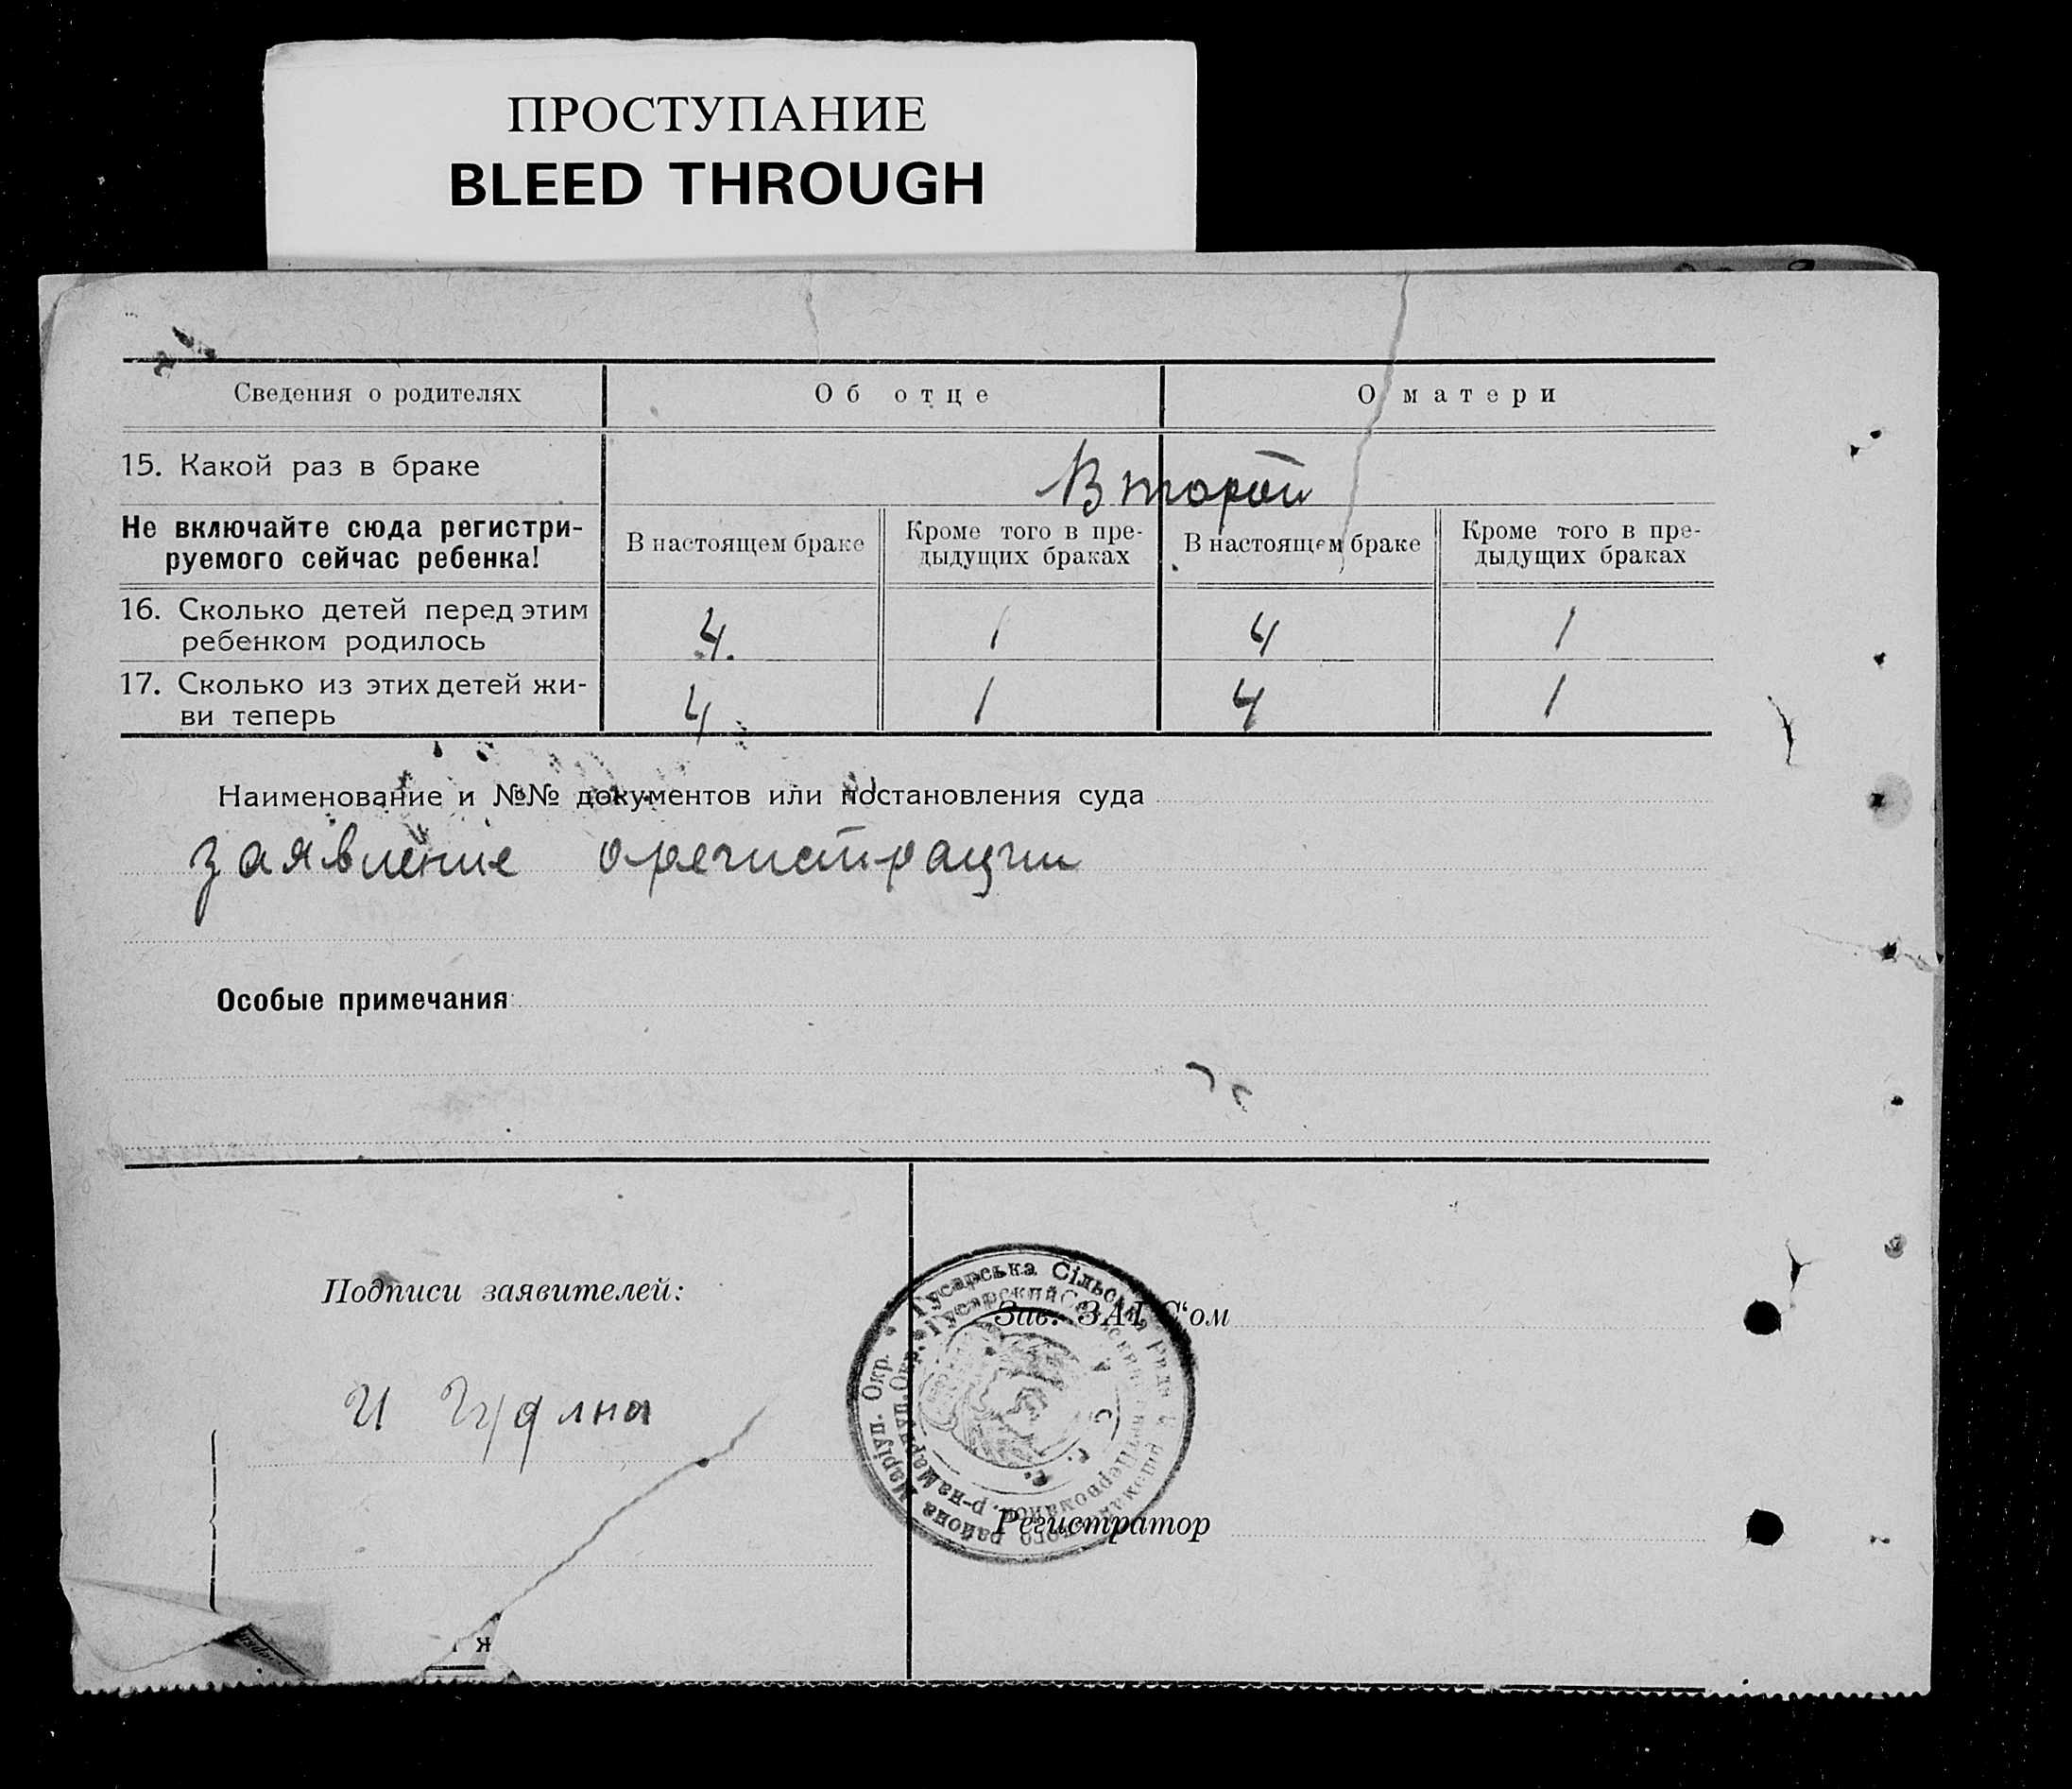 ПРОСТУПАНИЕ
BLEED THROUGH
Сведения о родителях
Об отце
О матери
15. Какой раз в браке
Второй
Не включайте сюда регистри-
руемого сейчас ребенка!
В настоящем браке
Кроме того в пре-
дыдущих браках
В настоящем браке
Кроме того в пре-
дыдущих браках
16. Сколько детей перед этим
ребенком родилось
4 1 4 1
17. Сколько из этих детей жи-
ви теперь
4 1 4 1
Наименование и №№ документов или постановления суда
заявление о регистрации
Особые примечания:
Подписи заявителей:
И
Зав. ЗАГС‘ом
Регистратор
Гусарська Сільська Рада
района Маріуп. Окр.
Гусарский
р-на Мариуп. Окр.